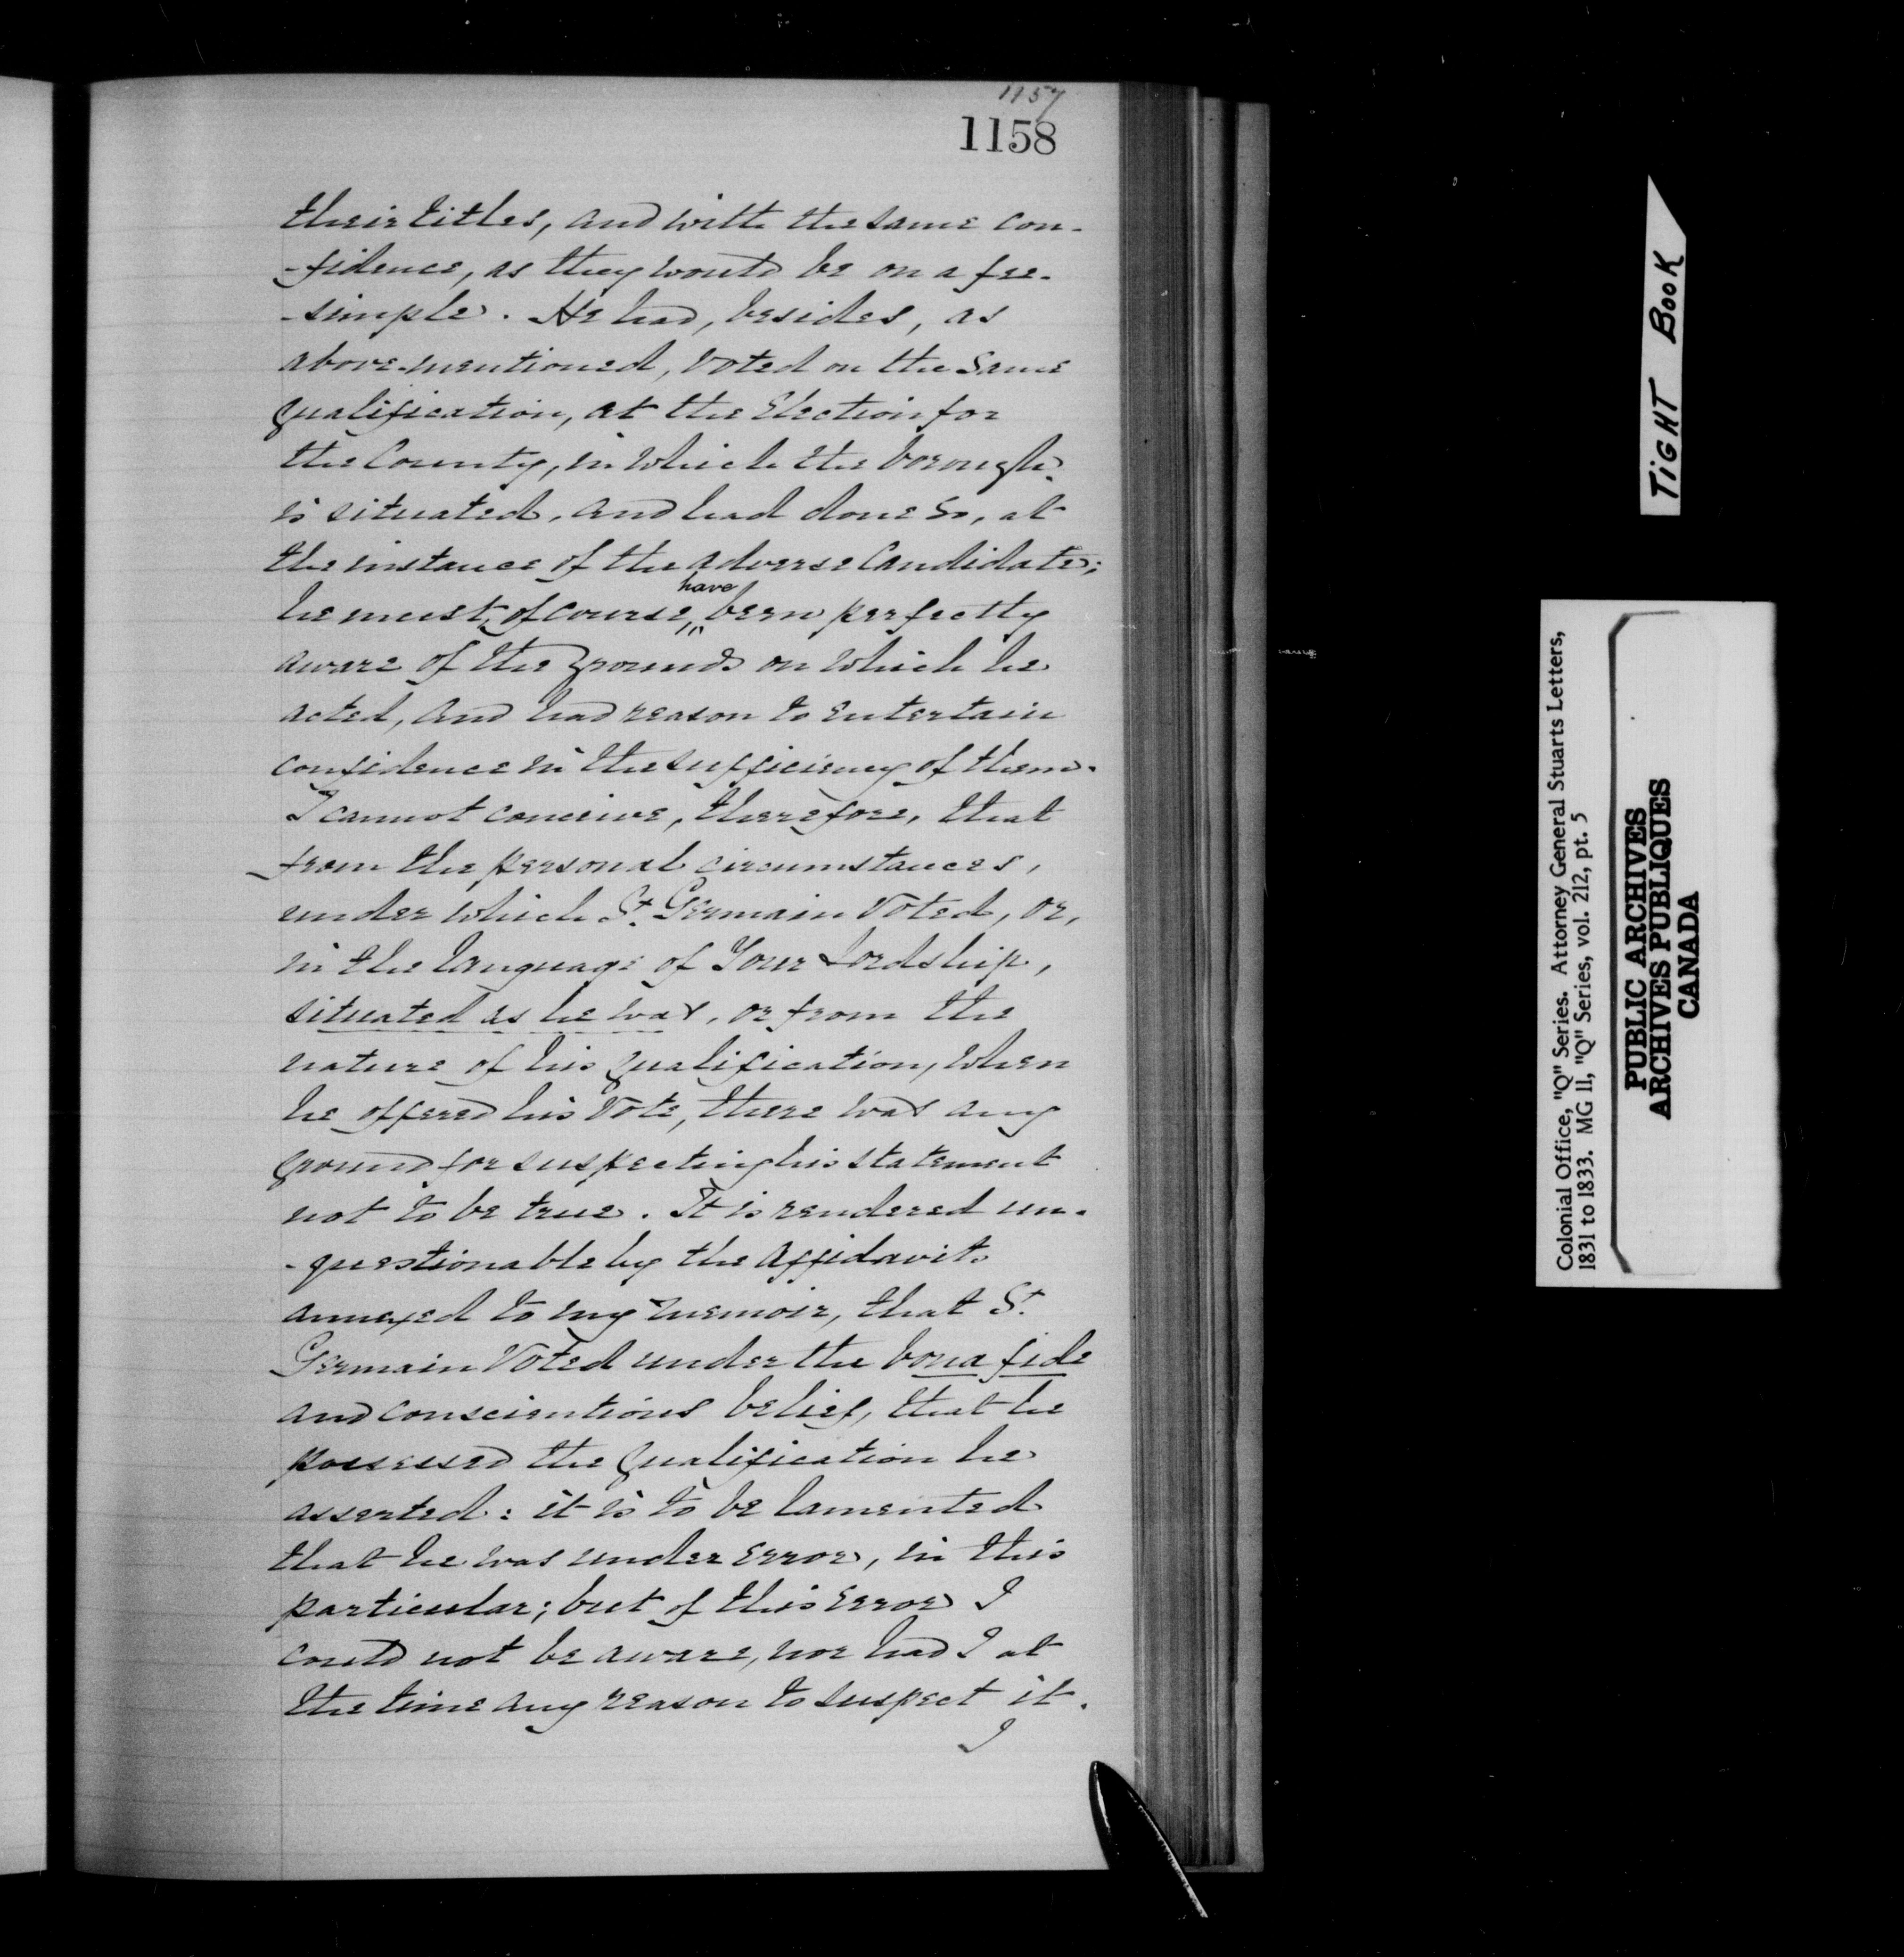 1157
1158
their titles, and with the same con-
-fidence, as they would be on a fee-
-simple. He had, besides, as
above-mentioned, voted on the same
qualification, at the Election for
the County, in which the borough
is situated, and had done so, at
the instance of the adverse Candidate;
have
he must, of course, been perfectly
aware of the grounds on which he
acted, and had reason to entertain
confidence in the sufficiency of them.
I cannot conceive, therefore, that
from the personal circumstances,
under which St. Germain Voted, or,
in the language of Your Lordship,
situated as he was, or from the
nature of his qualification, when
he offered his Vote, there was any
ground for suspecting his statement
not to be true. It is rendered un-
-questionable by the Affidavits
annexed to my memoir, that St.
Germain Voted under the bona fide
and conscientious belief, that he
possessed the qualification he
asserted: it is to be lamented
that he was under error, in this
particular; but of this Error I
could not be aware, nor had I at
the time any reason to suspect it.
I
TIGHT BOOK
Colonial Office, "Q" Series. Attorney General Stuarts Letters,
1831 to 1833. MG 11, "Q" Series, vol. 212, pt. 5
PUBLIC ARCHIVES
ARCHIVES PUBLIQUES
CANADA